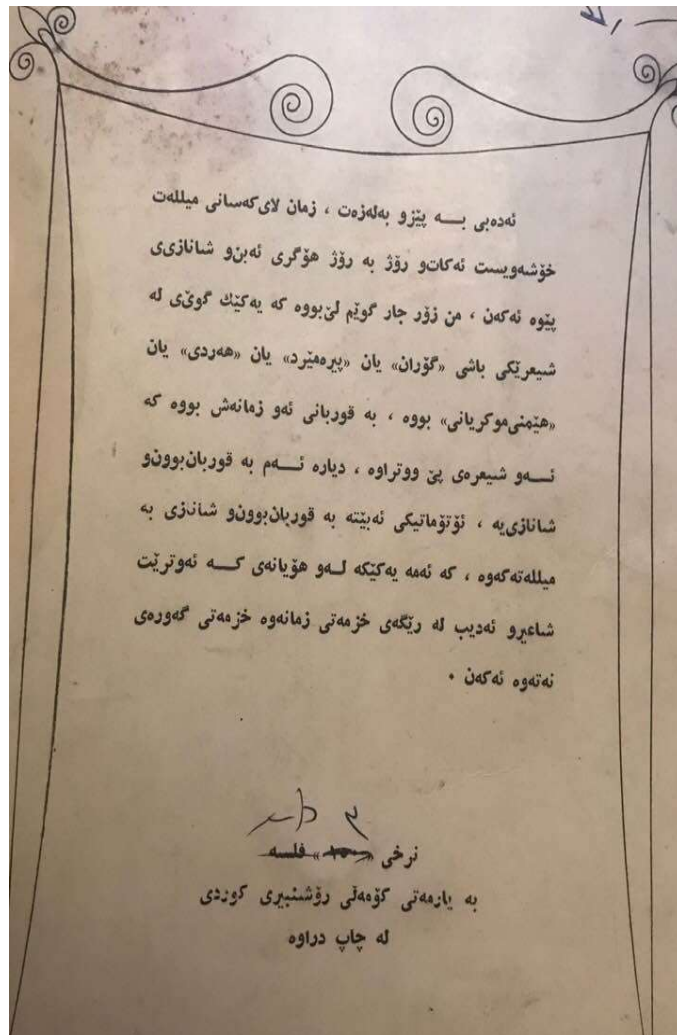 ئەدەبی بـــە پێزو بەلەزەت ، زمان لای کەسانی میللەت
خۆشەویست ئەکات‌و رۆژ بە رۆژ هۆگری ئەبن‌و شانازی‌ی
پێوە ئەکەن ، من زۆر جار گوێم لێ‌بووە کە یەکێك گوێ‌ی لە
شیعرێکی باشی «گۆران» یان «پیرەمێرد» یان «هەردی» یان
«هێمنی‌موکریانی» بووە ، بە قوربانی ئەو زمانەش بووە کە
ئـــەو شیعرەی پێ ووتراوە ، دیارە ئـــەم بە قوربان‌بوون‌و
شانازی‌یە ، ئۆتۆماتیکی ئەبێتە بە قوربان‌بوون‌و شانازی بە
میللەتەکەوە ، کە ئەمە یەکێکە لـــەو هۆیانەی کـــە ئەوترێت
شاعیرو ئەدیب لە رێگەی خزمەتی زمانەوە خزمەتی گەورەی
نەتەوە ئەکەن ٠
نرخی فلسە
بە یارمەتی کۆمەڵی رۆشنبیری کوردی
لە چاپ دراوە